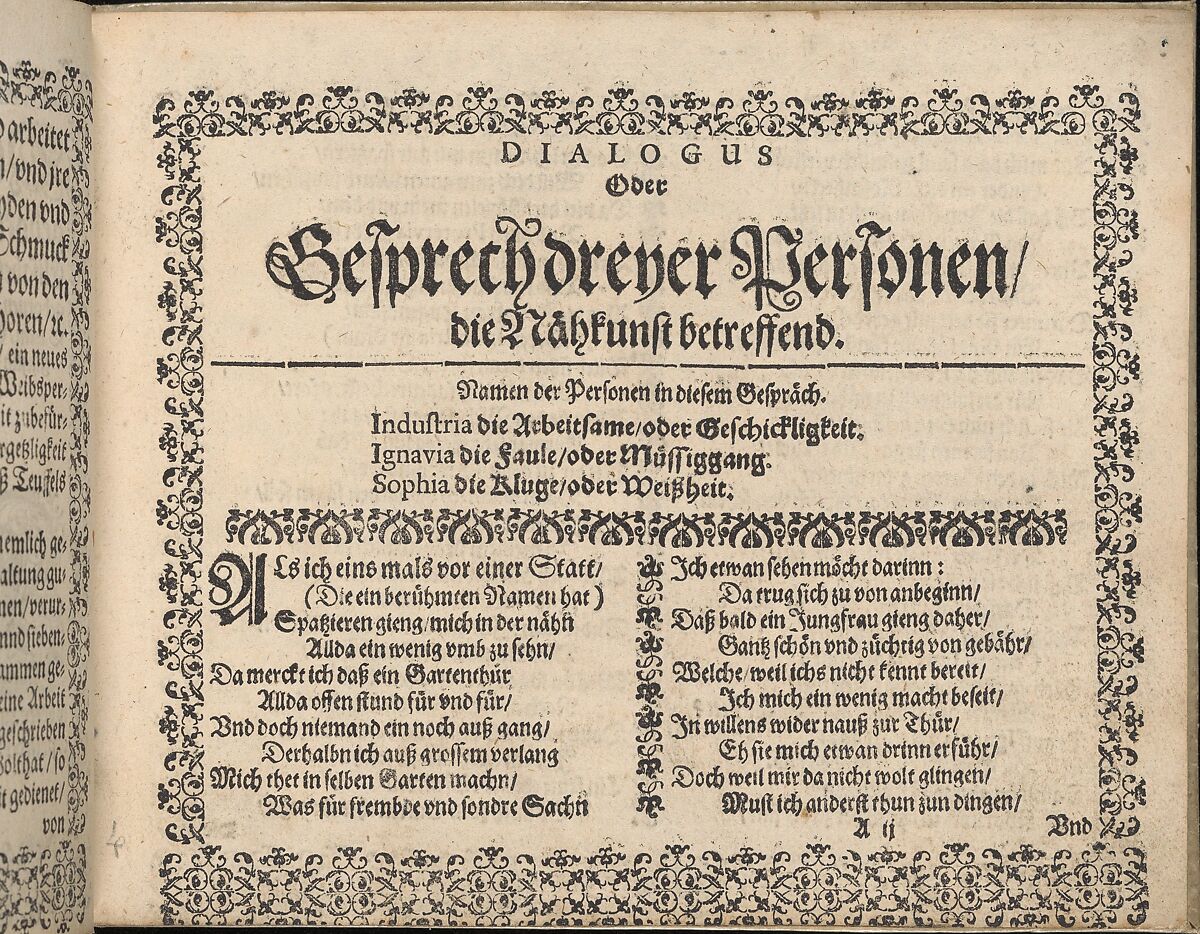 arbeitet
n/ vnd jre
den vnd
Schmuck
von den
horen/ ꝛc.
/ ein neues
Weibsper-
it zubefür-
rgetzligkeit
ß Teuffels
nemlich ge-
altung gu-
nen/ verur-
nnd sieben-
ammen ge-
eine Arbeit
geschrieben
Wolthat/ so
it gedienet/
von
DIALOGUS
Oder
Gesprech dreyer Personen/
die Nähkunst betreffend.
Namen der Personen in diesem Gespräch.
Industria die Arbeitsame/ oder Geschickligkeit.
Ignavia die Faule/ oder Müssiggang.
Sophia die Kluge/ oder Weißheit.
ALs ich eins mals vor einer Statt/
(Die ein berühmten Namen hat)
Spatzieren gieng/ mich in der nähn
Allda ein wenig vmb zu sehn/
Da merckt ich daß ein Gartenthür
Allda offen stund für vnd für/
Vnd doch niemand ein noch auß gang/
Derhalbn ich auß grossem verlang
Mich thet in selben Garten machn/
Was für frembde vnd sondre Sachn
Ich etwan sehen möcht darinn:
Da trug sich zu von anbeginn/
Daß bald ein Jungfrau gieng daher/
Gantz schön vnd züchtig von gebähr/
Welche/ weil ichs nicht kennt bereit/
Ich mich ein wenig macht beseit/
In willens wider nauß zur Thür/
Eh sie mich etwan drinn erführ/
Doch weil mir da nicht wolt glingen/
Must ich anderst thun zun dingen/
A ij
Vnd